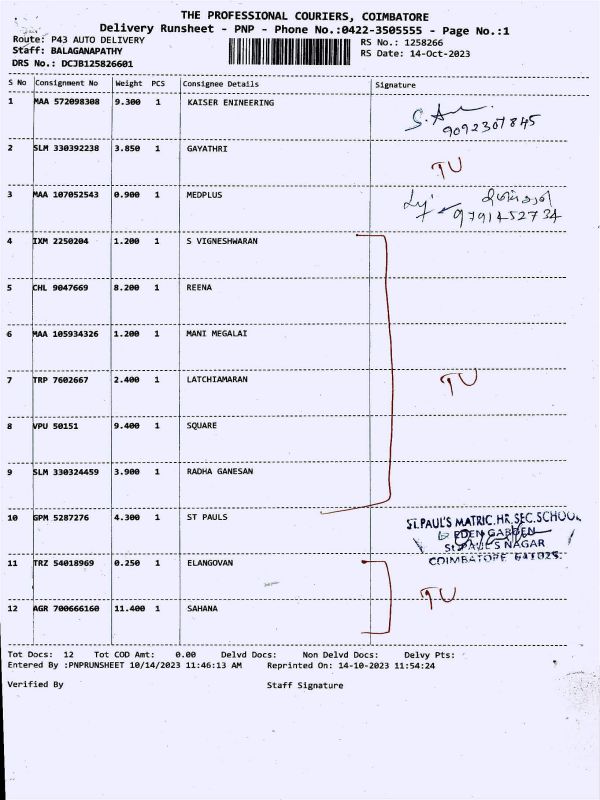 THE PROFESSIONAL COURIERS, COIMBATORE
Delivery Runsheet - PNP - Phone No.:0422-3505555 - Page No.:1
Route: P43 AUTO DELIVERY
Staff: BALAGANAPATHY
DRS No.: DCJB125826601
RS No.: 1258266
RS Date: 14-Oct-2023
S No Consignment No Weight PCS Consignee Details Signature
1 MAA 572098308 9.300 1 KAISER ENINEERING
9092307845
2 SLM 330392238 3.850 1 GAYATHRI TU
3 MAA 107052543 0.900 1 MEDPLUS
9791452734
4 IXM 2250204 1.200 1 S VIGNESHWARAN
5 CHL 9047669 8.200 1 REENA
6 MAA 105934326 1.200 1 MANI MEGALAI
7 TRP 7602667 2.400 1 LATCHIAMARAN TU
8 VPU 50151 9.400 1 SQUARE
9 SLM 330324459 3.900 1 RADHA GANESAN
10 GPM 5287276 4.300 1 ST PAULS
ST.PAUL'S MATRIC.HR.SEC.SCHOOL
EDEN GARDEN
ST.PAUL'S NAGAR
COIMBATORE 641025.
11 TRZ 54018969 0.250 1 ELANGOVAN
TU
12 AGR 700666160 11.400 1 SAHANA
Tot Docs: 12 Tot COD Amt: 0.00 Delvd Docs: Non Delvd Docs: Delvy Pts:
Entered By :PNPRUNSHEET 10/14/2023 11:46:13 AM Reprinted On: 14-10-2023 11:54:24
Verified By Staff Signature